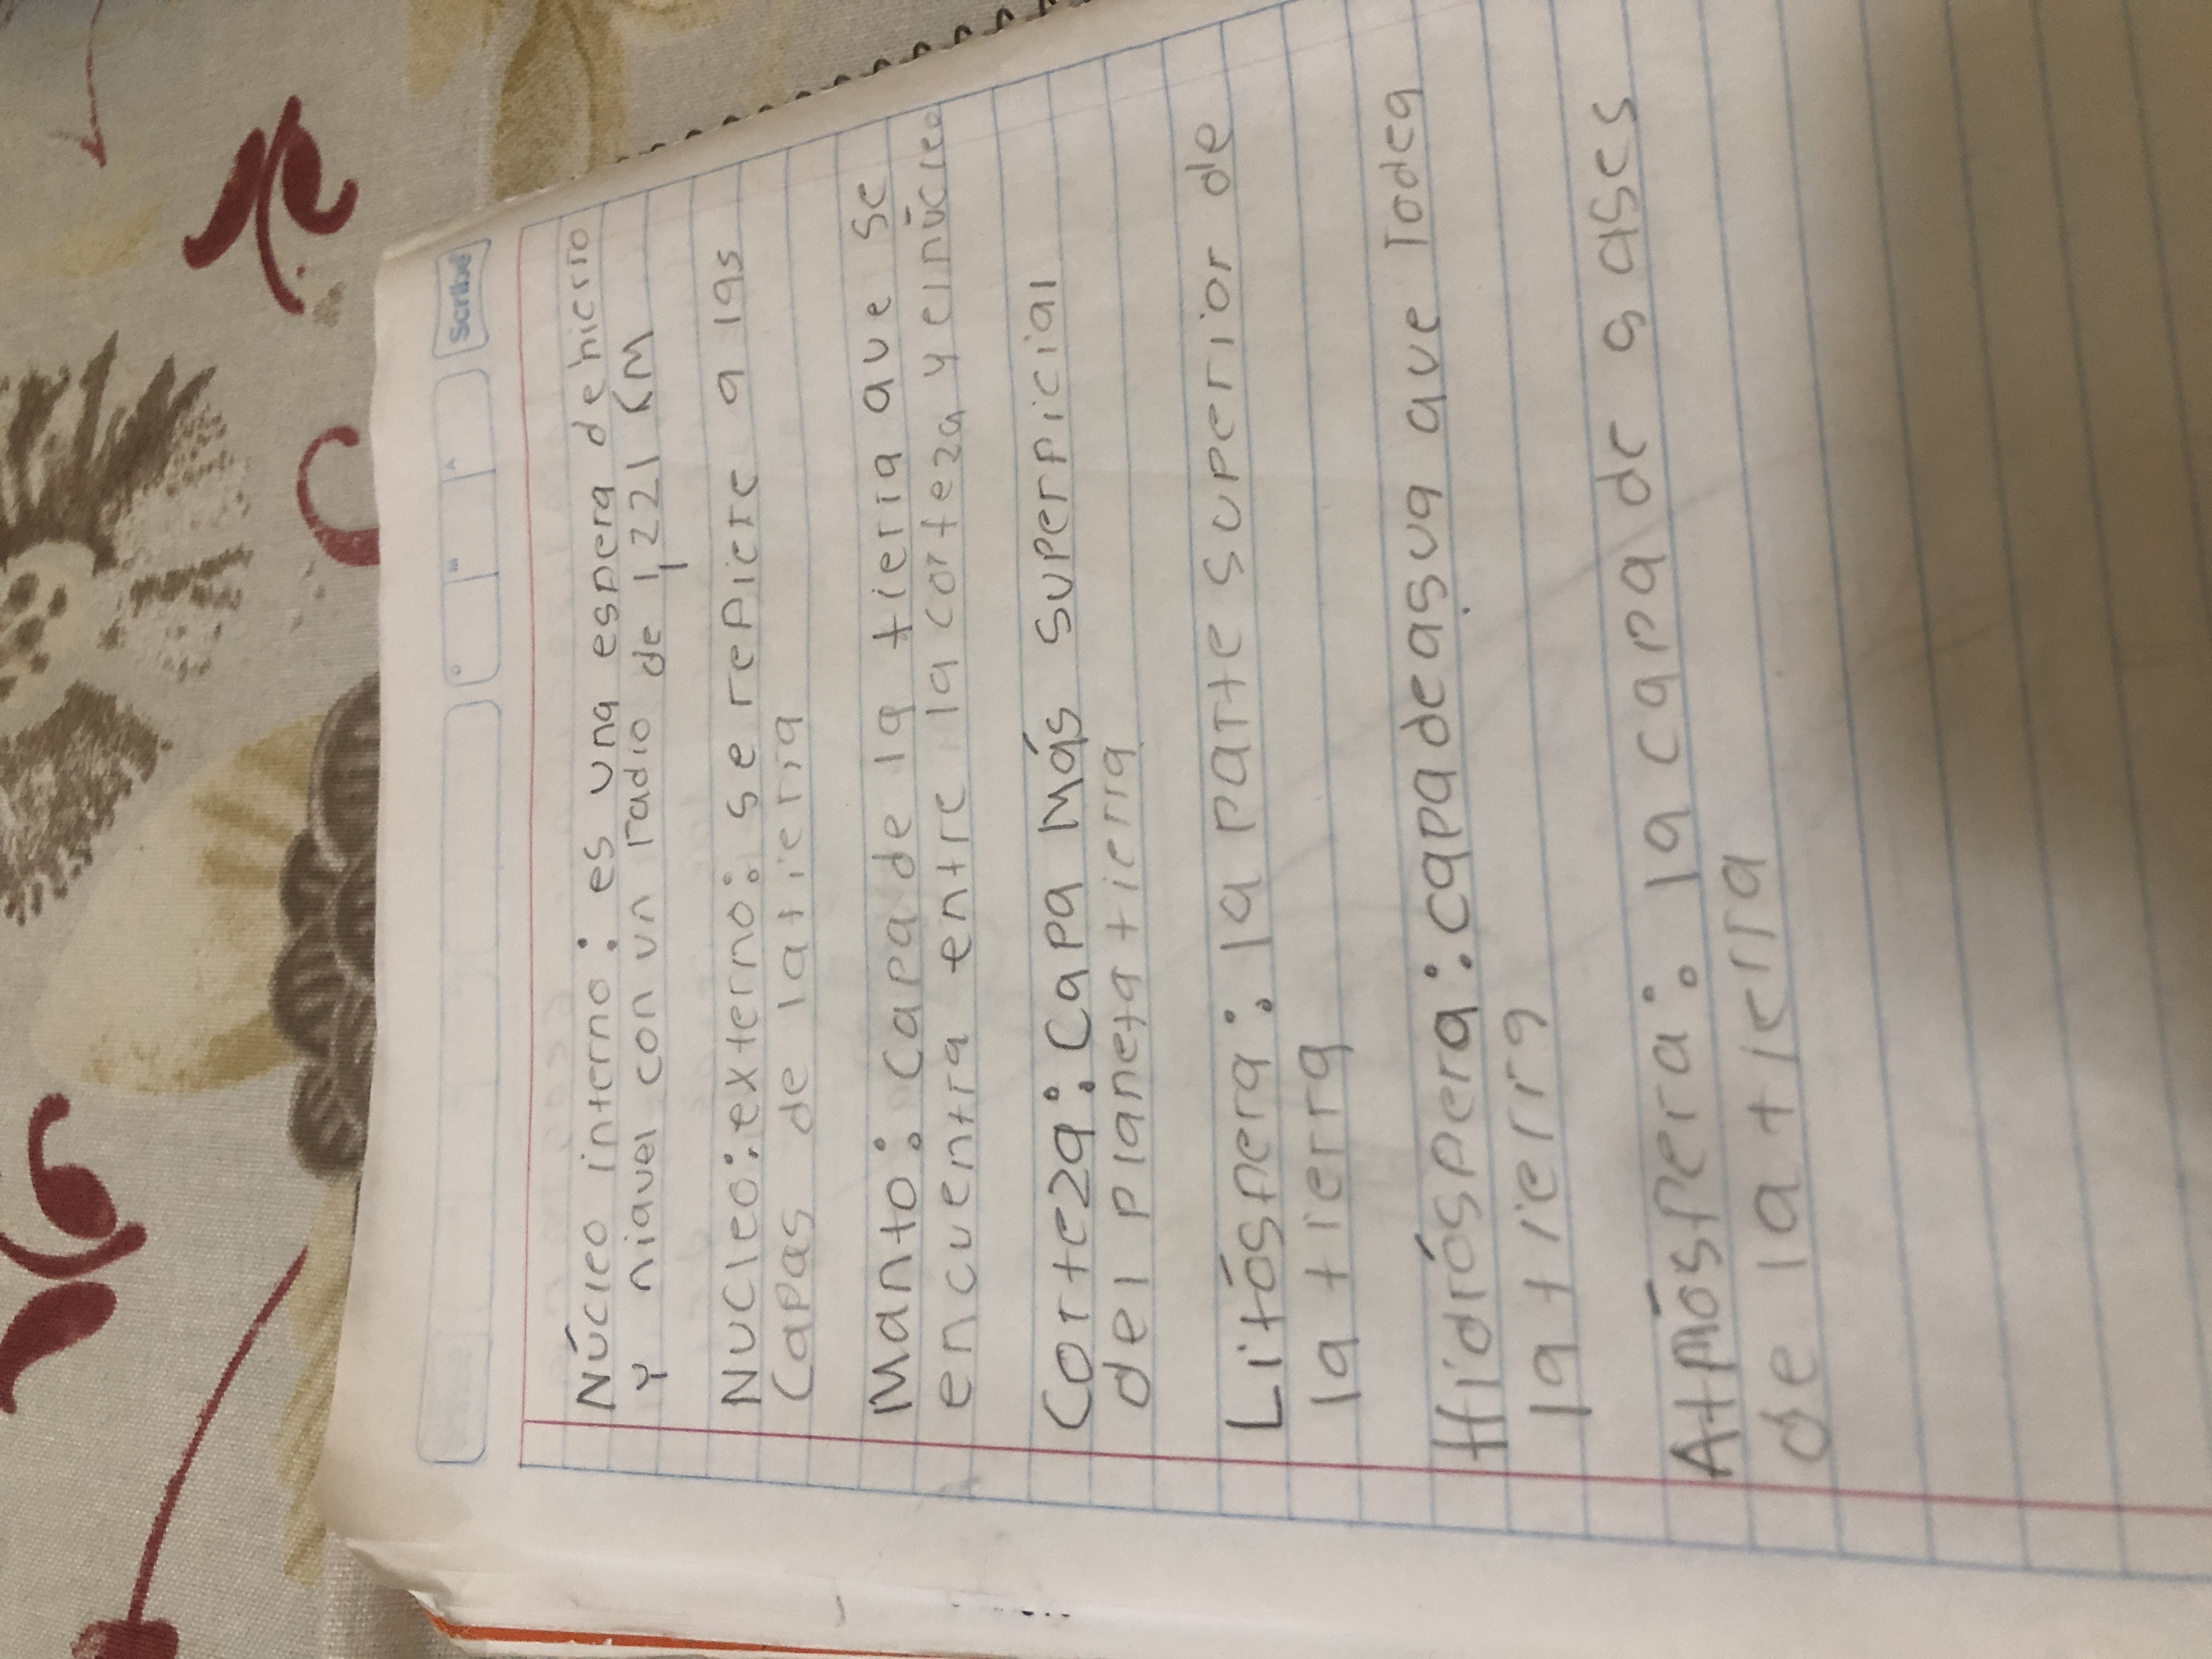 Scribe
Núcleo interno: es una espera de hierro
y niquel con un radio de 1,221 km
Nucleo: externo: se repiere a las
Capas de la tierra
Manto: Capa de la tierra que se
encuentra entre la corteza y el núcleo
Corteza: Capa Más superpicial
del planeta tierra
Litóspera: la parte superior de
la tierra
Hidróspera: capa de agua que rodea
la tierra
Atmóspera: la capa de gases
de la tierra